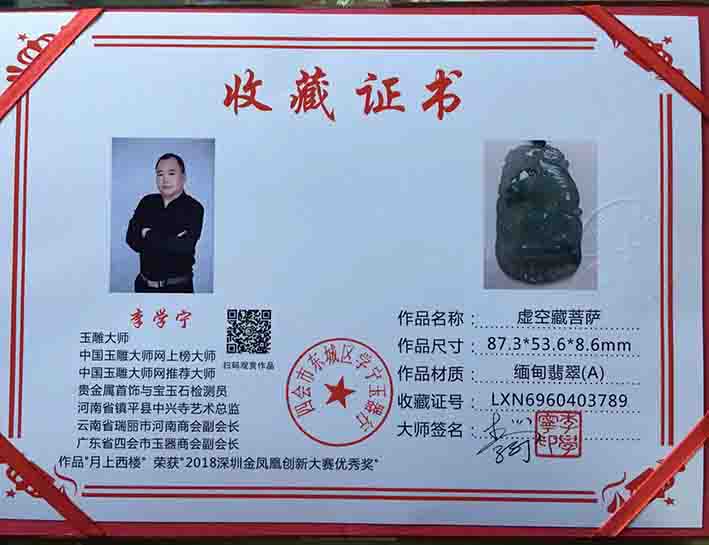 收藏证书
李学宁
玉雕大师
中国玉雕大师网上榜大师
中国玉雕大师网推荐大师
贵金属首饰与宝玉石检测员
河南省镇平县中兴寺艺术总监
云南省瑞丽市河南商会副会长
广东省四会市玉器商会副会长
作品"月上西楼" 荣获"2018深圳金凤凰创新大赛优秀奖"
扫码观赏作品
四会市东城区学宁玉器行
作品名称：虚空藏菩萨
作品尺寸：87.3*53.6*8.6mm
作品材质：缅甸翡翠(A)
收藏证号：LXN6960403789
大师签名：
李學寧印